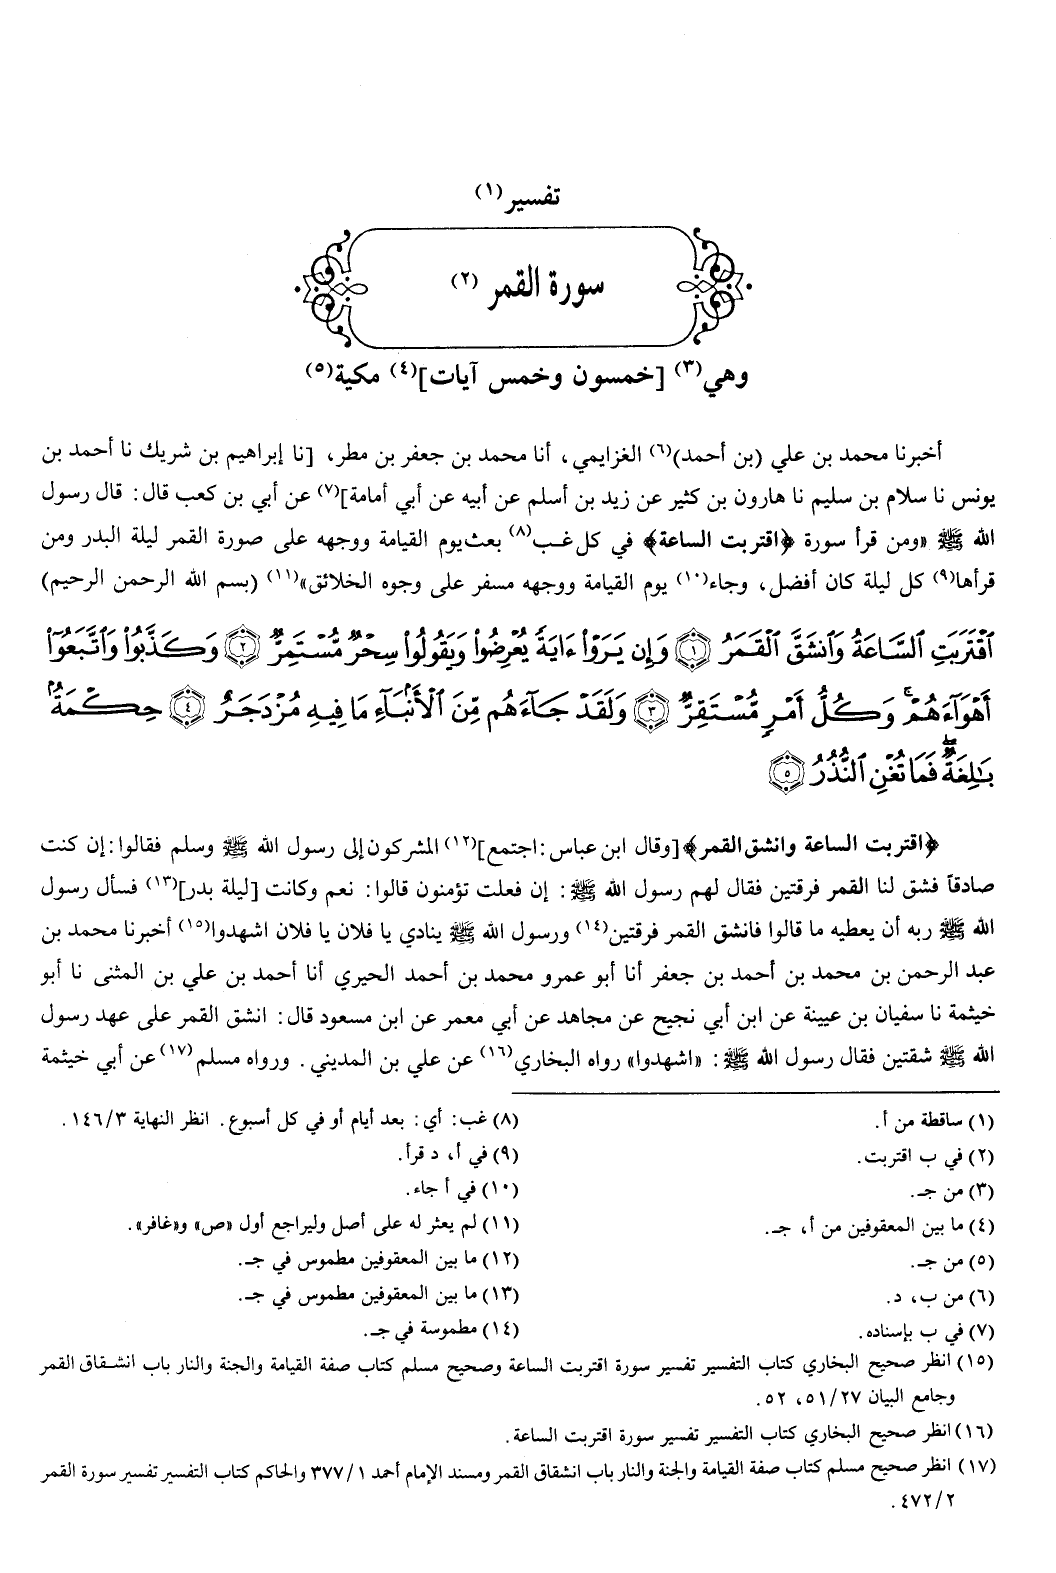 تفسير(١)
سورة القمر (٢)
وهي(٣) [خمسون وخمس آيات](٤) مكية(٥)
أخبرنا محمد بن علي (بن أحمد)(٦) الغزايمي، أنا محمد بن جعفر بن مطر، [نا إبراهيم بن شريك نا أحمد بن
يونس نا سلام بن سليم نا هارون بن كثير عن زيد بن أسلم عن أبيه عن أبي أمامة](٧) عن أبي بن كعب قال: قال رسول
الله ﷺ «ومن قرأ سورة ﴿اقتربت الساعة﴾ في كل غب(٨) بعث يوم القيامة ووجهه على صورة القمر ليلة البدر ومن
قرأها(٩) كل ليلة كان أفضل، وجاء(١٠) يوم القيامة ووجهه مسفر على وجوه الخلائق»(١١) (بسم الله الرحمن الرحيم)
ٱقْتَرَبَتِ ٱلسَّاعَةُ وَٱنشَقَّ ٱلْقَمَرُ ۝١ وَإِن يَرَوْا۟ ءَايَةً يُعْرِضُوا۟ وَيَقُولُوا۟ سِحْرٌ مُّسْتَمِرٌّ ۝٢ وَكَذَّبُوا۟ وَٱتَّبَعُوٓا۟
أَهْوَآءَهُمْ ۚ وَكُلُّ أَمْرٍ مُّسْتَقِرٌّ ۝٣ وَلَقَدْ جَآءَهُم مِّنَ ٱلْأَنۢبَآءِ مَا فِيهِ مُزْدَجَرٌ ۝٤ حِكْمَةٌۢ
بَٰلِغَةٌ ۖ فَمَا تُغْنِ ٱلنُّذُرُ ۝٥
﴿اقتربت الساعة وانشق القمر﴾[وقال ابن عباس: اجتمع](١٢) المشركون إلى رسول الله ﷺ وسلم فقالوا: إن كنت
صادقاً فشق لنا القمر فرقتين فقال لهم رسول الله ﷺ: إن فعلت تؤمنون قالوا: نعم وكانت [ليلة بدر](١٣) فسأل رسول
الله ﷺ ربه أن يعطيه ما قالوا فانشق القمر فرقتين(١٤) ورسول الله ﷺ ينادي يا فلان يا فلان اشهدوا(١٥) أخبرنا محمد بن
عبد الرحمن بن محمد بن أحمد بن جعفر أنا أبو عمرو محمد بن أحمد الحيري أنا أحمد بن علي بن المثنى نا أبو
خيثمة نا سفيان بن عيينة عن ابن أبي نجيح عن مجاهد عن أبي معمر عن ابن مسعود قال: انشق القمر على عهد رسول
الله ﷺ شقتين فقال رسول الله ﷺ: «اشهدوا» رواه البخاري(١٦) عن علي بن المديني. ورواه مسلم(١٧) عن أبي خيثمة
(١) ساقطة من أ.
(٢) في ب اقتربت.
(٣) من جـ.
(٤) ما بين المعقوفين من أ، جـ.
(٥) من جـ.
(٦) من ب، د.
(٧) في ب بإسناده.
(٨) غب: أي: بعد أيام أو في كل أسبوع. انظر النهاية ١٤٦/٣.
(٩) في أ، د قرأ.
(١٠) في أ جاء.
(١١) لم يعثر له على أصل وليراجع أول «ص» و«غافر».
(١٢) ما بين المعقوفين مطموس في جـ.
(١٣) ما بين المعقوفين مطموس في جـ.
(١٤) مطموسة في جـ.
(١٥) انظر صحيح البخاري كتاب التفسير تفسير سورة اقتربت الساعة وصحيح مسلم كتاب صفة القيامة والجنة والنار باب انشقاق القمر
وجامع البيان ٥١/٢٧، ٥٢.
(١٦) انظر صحيح البخاري كتاب التفسير تفسير سورة اقتربت الساعة.
(١٧) انظر صحيح مسلم كتاب صفة القيامة والجنة والنار باب انشقاق القمر ومسند الإمام أحمد ٣٧٧/١ والحاكم كتاب التفسير تفسير سورة القمر
٤٧٢/٢.